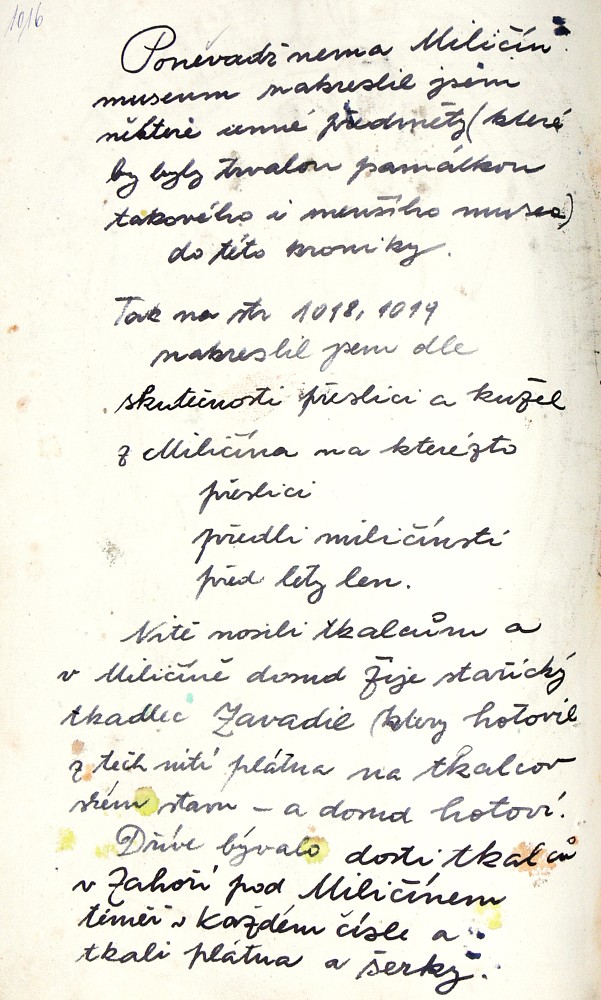 1016
Poněvadž nemá Miličín
museum nakreslil jsem
některé cenné předměty (které
by byly trvalou památkou
takového i menšího musea)
do této kroniky.
Tak na str 1018, 1019
nakreslil jsem dle
skutečnosti přeslici a kužel
z Miličína na kterézto
přeslici
předli miličínští
před léty len.
Nitě nosili tkalcům a
v Miličíně dosud žije stařický
tkadlec Zavadil (který hotovil
z těch nití plátna na tkalcov
ském stavu – a dosud hotoví.
Dříve bývalo dosti tkalců
v Záhoří pod Miličínem
téměř v každém čísle a
tkali plátna a šerky.